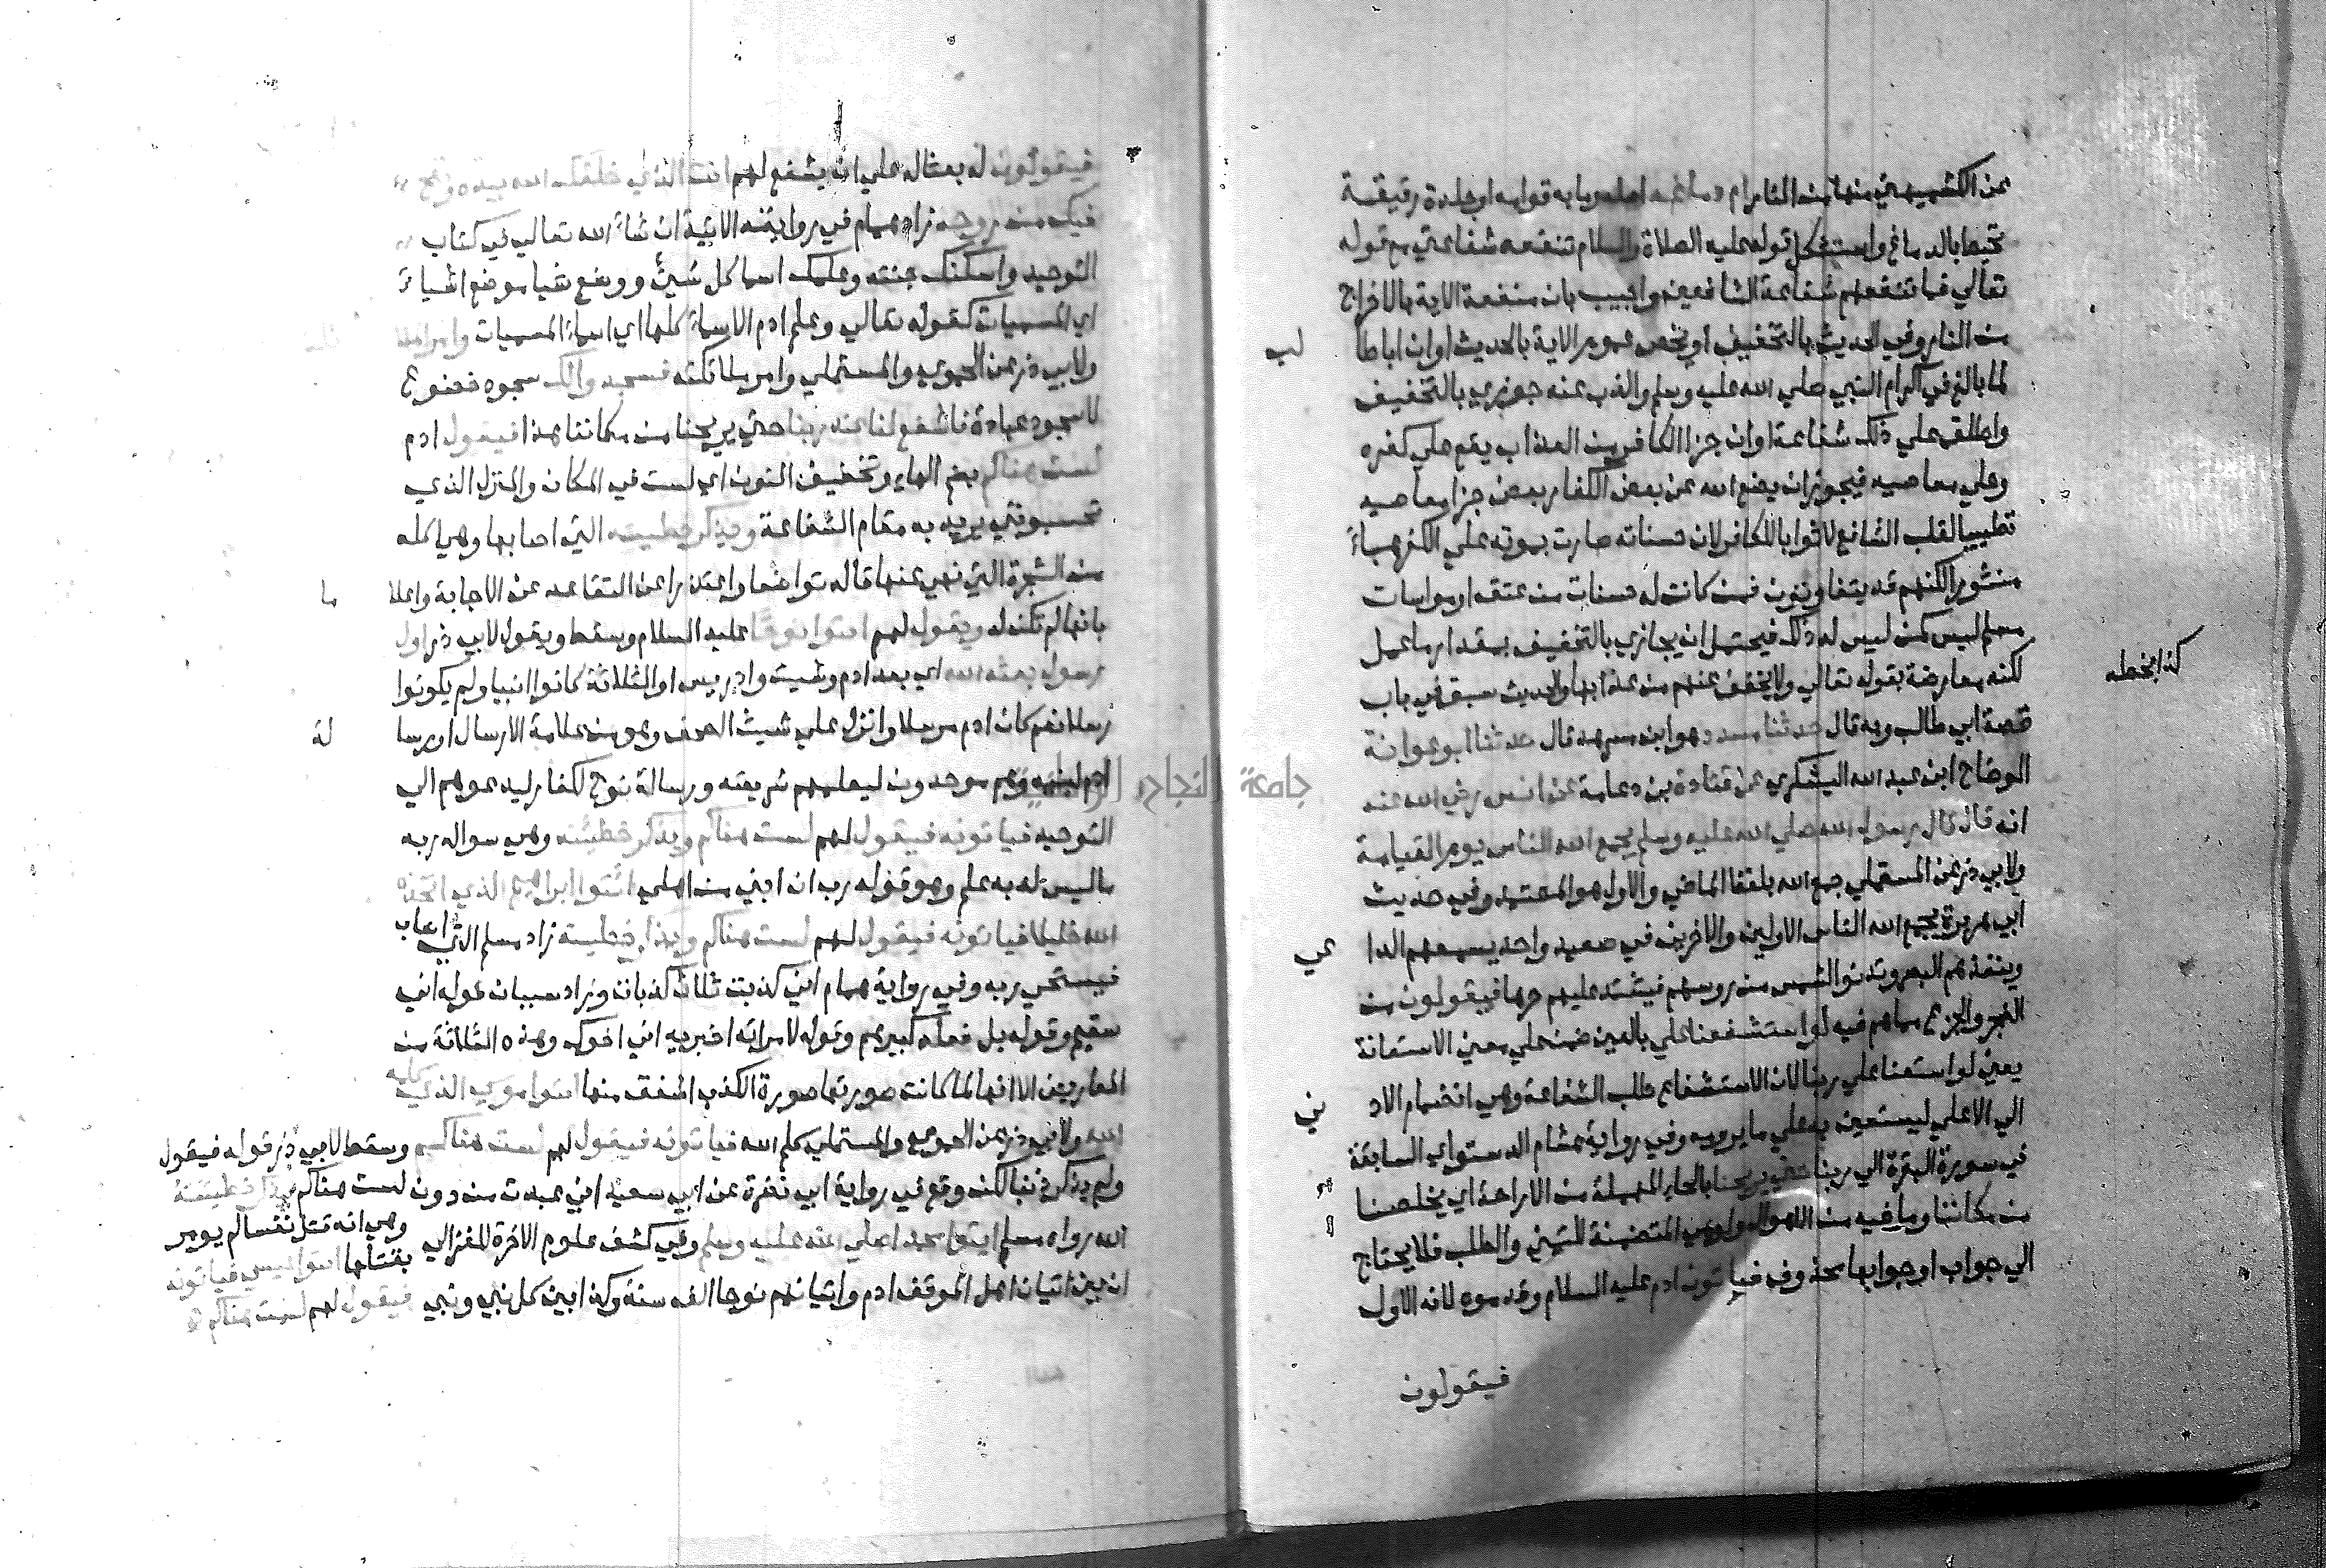 عن الكشميهني منها من النار ام دماغه اصله وما به قوامه او جلدة رقيقة
تحيط بالدماغ واستشكل قوله عليه الصلاة والسلام تنفعه شفاعتي مع قوله
تعالي فما تنفعهم شفاعة الشافعين واجيب بان منفعة الاية بالاخراج
من النار وفي الحديث بالتخفيف او يخص عموم الاية بالحديث او ان ابا طا لب
لما بالغ في اكرام النبي صلي الله عليه وسلم والذب عنه جوزي بالتخفيف
واطلق علي ذلك شفاعة او ان جزا الكافر من العذاب يقع علي كفره
وعلي معاصيه فيجوز ان يضع الله عن بعض الكفار بعض جزا معاصيه
تطييبا لقلب الشافع لا ثوابا للكافر لان حسناته صارت بموته علي الكفر هباء
منثورا لكنهم قد يتفاوتون فمن كانت له حسنات من عتق او مواسات
مسلم ليس كمن ليس له ذلك فيحتمل ان يجازي بالتخفيف بمقدار ما عمل
لكنه معارضة بقوله تعالي ولا يخفف عنهم من عذابها والحديث سبق في باب
كذا بخطه
قصة ابي طالب وبه قال حدثنا مسدد هو ابن مسرهد قال حدثنا ابو عوانة
الوضاح ابن عبد الله اليشكري عن قتادة بن دعامة عن انس رضي الله عنه
انه قال قال رسول الله صلي الله عليه وسلم يجمع الله الناس يوم القيامة
ولابي ذر عن المستملي جمع الله بلفظ الماضي والاول هو المعتمد وفي حديث
ابي هريرة يجمع الله الناس الاولين والاخرين في صعيد واحد يسمعهم الدا عي
وينفذهم البصر وتدنوا الشمس من روسهم فيشتد عليهم حرها فيقولون من
الضجر والجزع مما هم فيه لو استشفعنا علي بالعين ضمن علي معني الاستعانة
يعني لو استعنا علي ربنا لان الاستشفاع طلب الشفاعة وهي انضمام الاد ني
الي الاعلي ليستعين به علي ما يرومه وفي رواية هشام الدستواي السابقة
في سورة البقرة الي ربنا حتي يريحنا بالحاء المهملة من الاراحة اي يخلصنا
من مكاننا وما فيه من الاهوال ولو هي المتضمنة للتمني والطلب فلا يحتاج
الي جواب او جوابها محذوف فياتون ادم عليه السلام وقدموه لانه الاول
فيقولون
فيقولون له بعثا له علي ان يشفع لهم انت الذي خلقك الله بيده ونفخ
فيك من روحه زاد همام في روايته الاتية ان شاء الله تعالي في كتاب
التوحيد واسكنك جنته وعلمك اسما كل شيء ووضع شيا موضع اشياء
اي المسميات كقوله تعالي وعلم ادم الاسماء كلها اي اسماء المسميات وامر الملا ئكة
ولابي ذر عن الحموي والمستملي وامر ملائكته فسجدوا لك سجود خضوع
لا سجود عبادة فاشفع لنا عند ربنا حتي يريحنا من مكاننا هذا فيقول ادم
لست هناكم بضم الهاء وتخفيف النون اي لست في المكان والمنزل الذي
تحسبونني يريد به مقام الشفاعة ويذكر خطيئته التي اصابها وهي اكله
من الشجرة التي نهي عنها قاله تواضعا واعتذرا عن التقاعد عن الاجابة واعلا ما
بانها لم تكن له ويقول لهم ائتوا نوحا عليه السلام وسقط ويقول لابي ذر اول
رسول بعثه الله اي بعد ادم وشيث وادريس او الثلاثة كانوا انبيا ولم يكونوا
رسلا نعم كان ادم مرسلا وانزل علي شيث الصحف وهو من علامة الارسال او رسا لة
ادم لبنيه وهم موحدون ليعلمهم شريعته ورسالة نوح لكفار ليدعوهم الي
التوحيد فياتونه فيقول لهم لست هناكم ويذكر خطيئته وهي سواله ربه
ما ليس له به علم وهو قوله رب ان ابني من اهلي ائتوا ابراهيم الذي اتخذه
الله خليلا فياتونه فيقول لهم لست هناكم ويذكر خطيئته زاد مسلم التي اصاب
فيستحي ربه وفي رواية همام اني كذبت ثلاث كذبات وزاد سبيان قوله اني
سقيم وقوله بل فعله كبيرهم وقوله لامراته اخبريه اني اخوك وهذه الثلاثة من
المعاريض الا انها لما كانت صورتها صورة الكذب اشفق منها ائتوا موسي الذي كلمه
الله ولابي ذر عن الحموي والمستملي كلم الله فياتونه فيقول لهم لست هناكم وسقط لابي ذر قوله فيقول
لست هناكم فيذكر خطيئته
وهي انه قتل نفسا لم يومر
بقتلها ائتوا عيسي فياتونه
فيقول لهم لست هناكم
ولم يذكر ذنبا لكن وقع في رواية ابي نضرة عن ابي سعيد اني عبدت من دون
الله رواه مسلم ايتوا محمدا صلي الله عليه وسلم وفي كشف علوم الاخرة للغزالي
ان بين اتيان اهل الموقف ادم واتيانهم نوحا الف سنة وكذا بين كل نبي ونبي